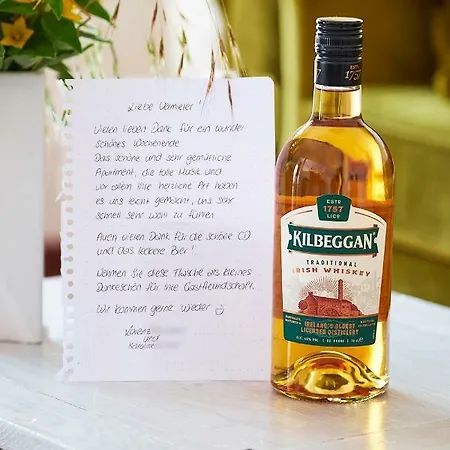 Liebe Vermieter!
Vielen lieben Dank für ein wunder
schönes Wochenende
Das schöne und sehr gemütliche
Apartment, die tolle Musik und
vor allem Ihre herzliche Art haben
es uns leicht gemacht, uns sehr
schnell sehr wohl zu fühlen
Auch vielen Dank für die schöne CD
und das leckere Bier!
Nehmen Sie diese Flasche als kleines
Dankeschön für Ihre Gastfreundschaft.
Wir kommen gerne wieder
und
1757
ESTD
1757
LICD
KILBEGGAN
TRADITIONAL
IRISH WHISKEY
IRELAND'S OLDEST
LICENSED DISTILLERY